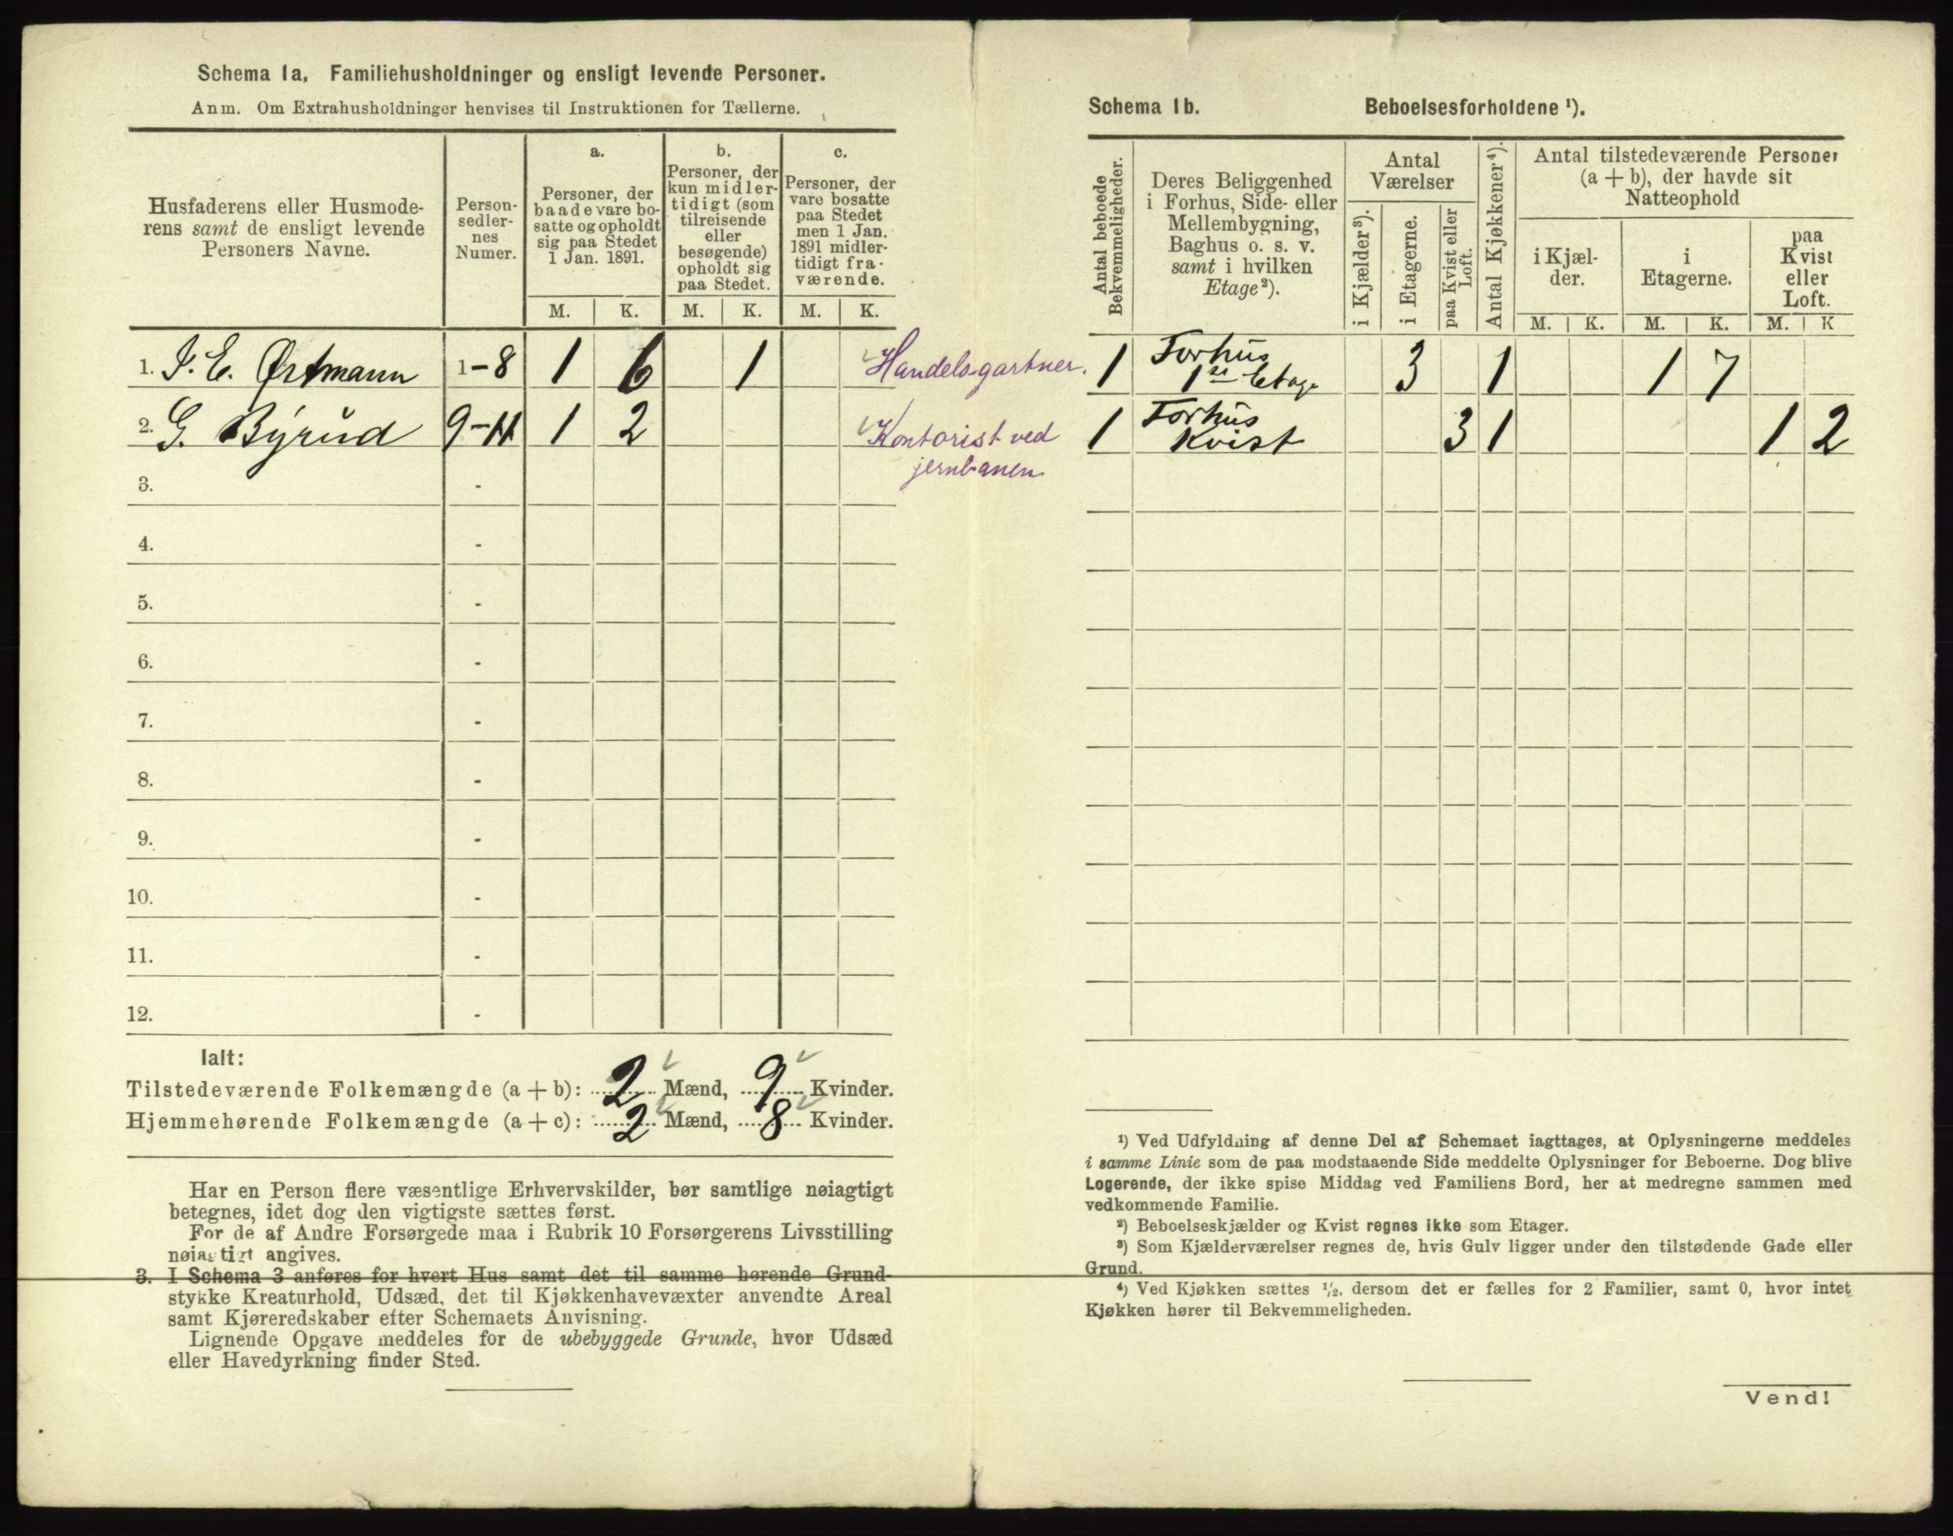 Schema 1a, Familiehusholdninger og ensligt levende Personer.
Anm. Om Extrahusholdninger henvises til Instruktionen for Tællerne.
Husfaderens eller Husmode-
rens samt de ensligt levende
Personers Navne.
Person-
sedler-
nes
Numer.
a.
Personer, der
baade vare bo-
satte og opholdt
sig paa Stedet
1 Jan. 1891.
b.
Personer, der
kun midler-
tidigt (som
tilreisende
eller
besøgende)
opholdt sig
paa Stedet.
c.
Personer, der
vare bosatte
paa Stedet
men 1 Jan.
1891 midler-
tidigt fra-
værende.
M. K. M. K. M. K.
1. J. E. Østmann 1-8 1 6 1 Handelsgartner.
2. G. Byrud 9-11 1 2 Kontorist ved
jernbanen
3. -
4. -
5. -
6. -
7. -
8. -
9. -
10. -
11. -
12. -
Ialt:
Tilstedeværende Folkemængde (a + b): 2 Mænd, 9 Kvinder.
Hjemmehørende Folkemængde (a + c): 2 Mænd, 8 Kvinder.
Har en Person flere væsentlige Erhvervskilder, bør samtlige nøiagtigt
betegnes, idet dog den vigtigste sættes først.
For de af Andre Forsørgede maa i Rubrik 10 Forsørgerens Livsstilling
nøiagtigt angives.
3. I Schema 3 anføres for hvert Hus samt det til samme hørende Grund-
stykke Kreaturhold, Udsæd, det til Kjøkkenhavevæxter anvendte Areal
samt Kjøreredskaber efter Schemaets Anvisning.
Lignende Opgave meddeles for de ubebyggede Grunde, hvor Udsæd
eller Havedyrkning finder Sted.
Schema 1b. Beboelsesforholdene ¹).
Antal beboede
Bekvemmeligheder.
Deres Beliggenhed
i Forhus, Side- eller
Mellembygning,
Baghus o. s. v.
samt i hvilken
Etage²).
Antal
Værelser
i Kjælder³).
i Etagerne.
paa Kvist eller
Loft.
Antal Kjøkkener⁴).
Antal tilstedeværende Personer
(a + b), der havde sit
Natteophold
i Kjæl-
der.
i
Etagerne.
paa
Kvist
eller
Loft.
M. K. M. K. M. K
1 Forhus
1ste Etage 3 1 1 7
1 Forhus
Kvist 3 1 1 2
¹) Ved Udfyldning af denne Del af Schemaet iagttages, at Oplysningerne meddeles
i samme Linie som de paa modstaaende Side meddelte Oplysninger for Beboerne. Dog blive
Logerende, der ikke spise Middag ved Familiens Bord, her at medregne sammen med
vedkommende Familie.
²) Beboelseskjælder og Kvist regnes ikke som Etager.
³) Som Kjælderværelser regnes de, hvis Gulv ligger under den tilstødende Gade eller
Grund.
⁴) Ved Kjøkken sættes ¹/₂, dersom det er fælles for 2 Familier, samt 0, hvor intet
Kjøkken hører til Bekvemmeligheden.
Vend!